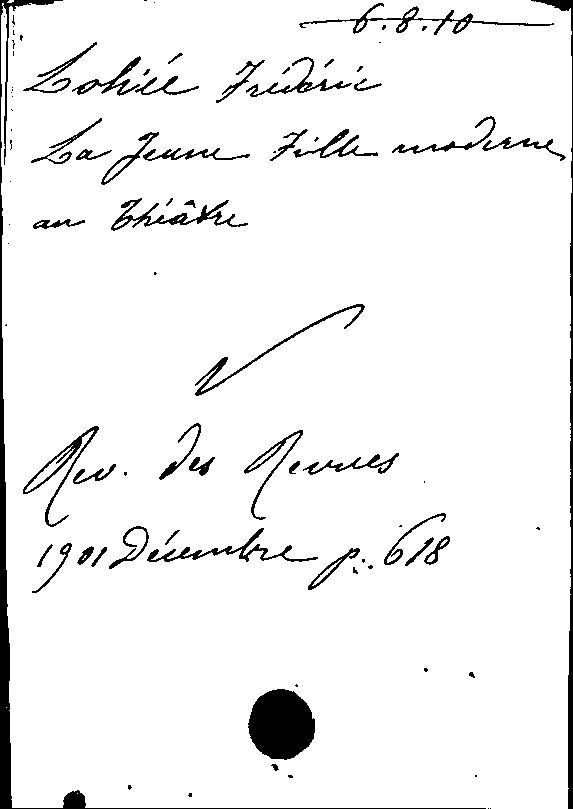 6.8.10
Loliée Frédéric
La Jeune Fille moderne
au Théâtre
Rev. des Revues
1901 Décembre p. 618